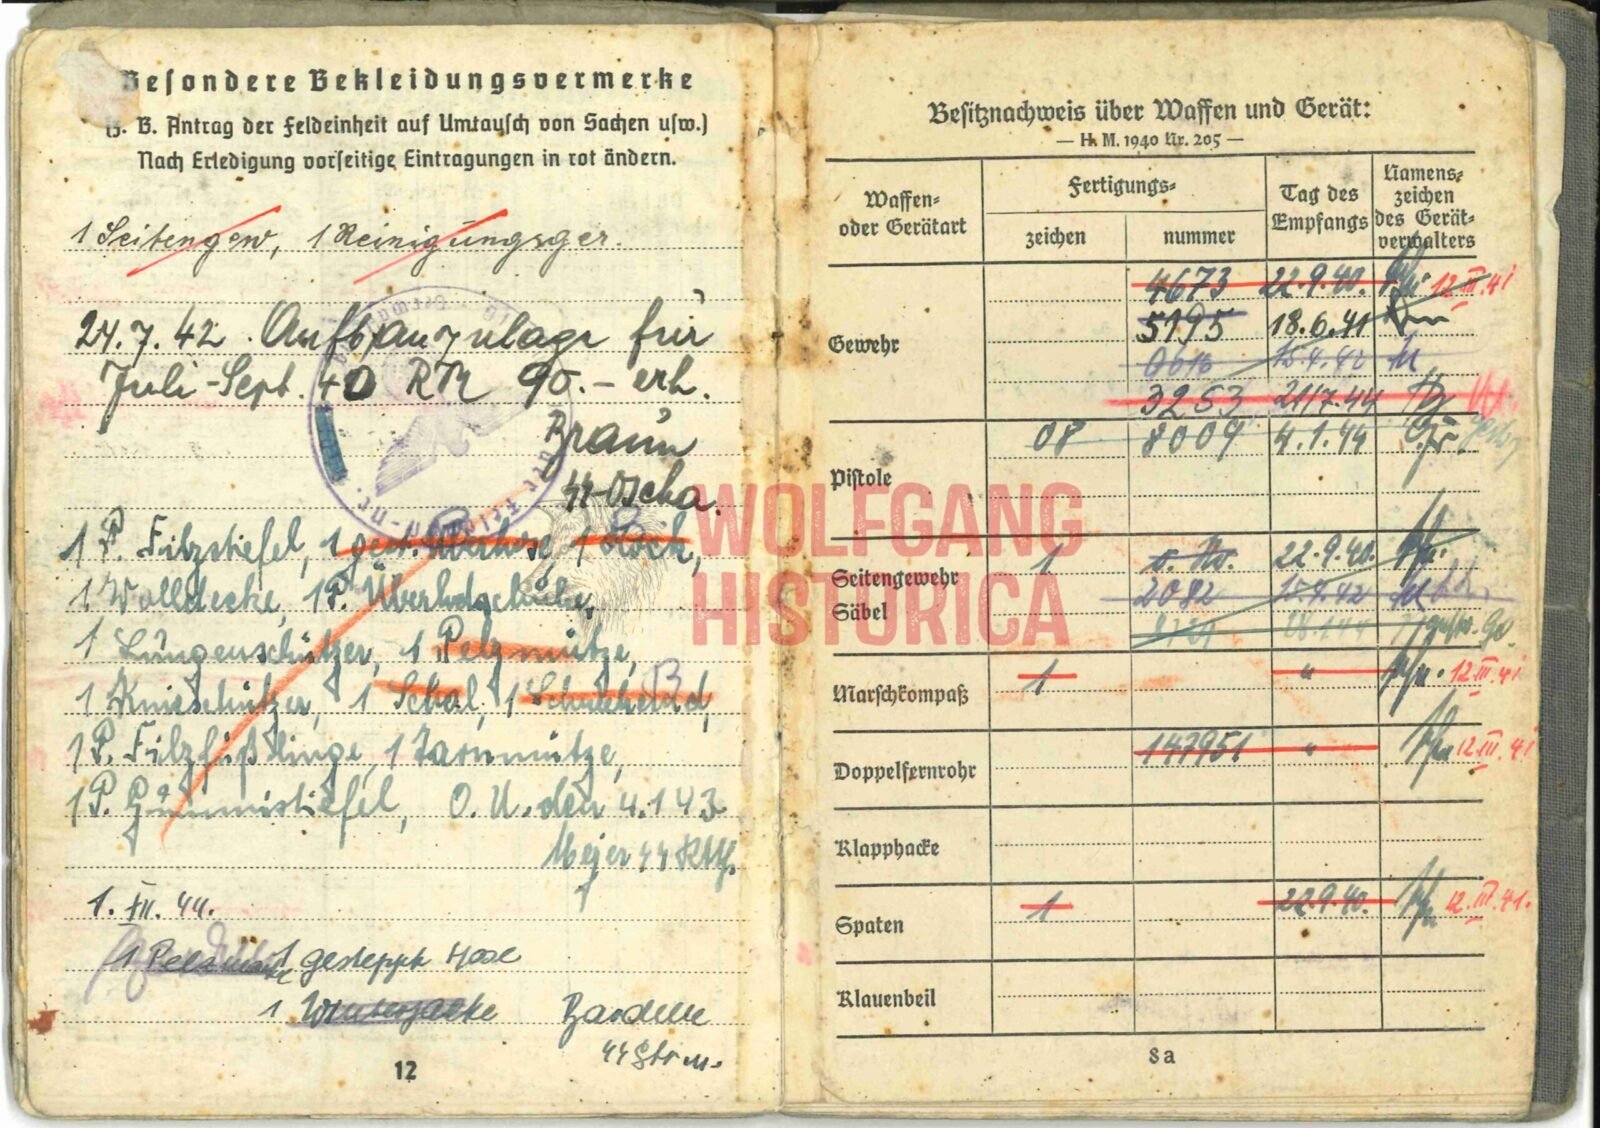 Besondere Bekleidungsvermerke
(z. B. Antrag der Feldeinheit auf Umtausch von Sachen usw.)
Nach Erledigung vorseitige Eintragungen in rot ändern.
1 Seitengew, 1 Reinigungsger.
24.7.42. Aufbauzulage für
Juli-Sept. 40 RM 90.- erh.
Braun
SS-Oscha.
1 P. Filzstiefel, 1 gest. Überhose, 1 Rock,
1 Wolldecke, 1 P. Überhdschuhe,
1 Lungenschützer, 1 Pelzmütze,
1 Knieschützer, 1 Schal, 1 Schneehemd,
1 P. Filzfüßlinge, 1 Tarnmütze,
1 P. Gummistiefel, O.U. den 4.1.43
Meyer SS Rttf.
1. XII. 44.
1 gesteppte Hose
1 Winterjacke
SS Strm.
12
WOLFGANG
HISTORICA
Besitznachweis über Waffen und Gerät:
— H. M. 1940 Nr. 205 —
Waffen- oder Gerätart
Fertigungs-
zeichen
nummer
Tag des Empfangs
Namens- zeichen des Gerät- verwalters
Gewehr
4673 22.9.40. 12.III.41
5195 18.6.41
0616 15.4.42 M
3253 21/7.44
Pistole
08 8009 4.1.44
Seitengewehr
Säbel
1 o. No. 22.9.40.
2082 15.4.42 M
Marschkompaß
1 " 12.III.41
Doppelfernrohr
147951 " 12.III.41
Klapphacke
Spaten
1 22.9.40. 12.III.41.
Klauenbeil
8a